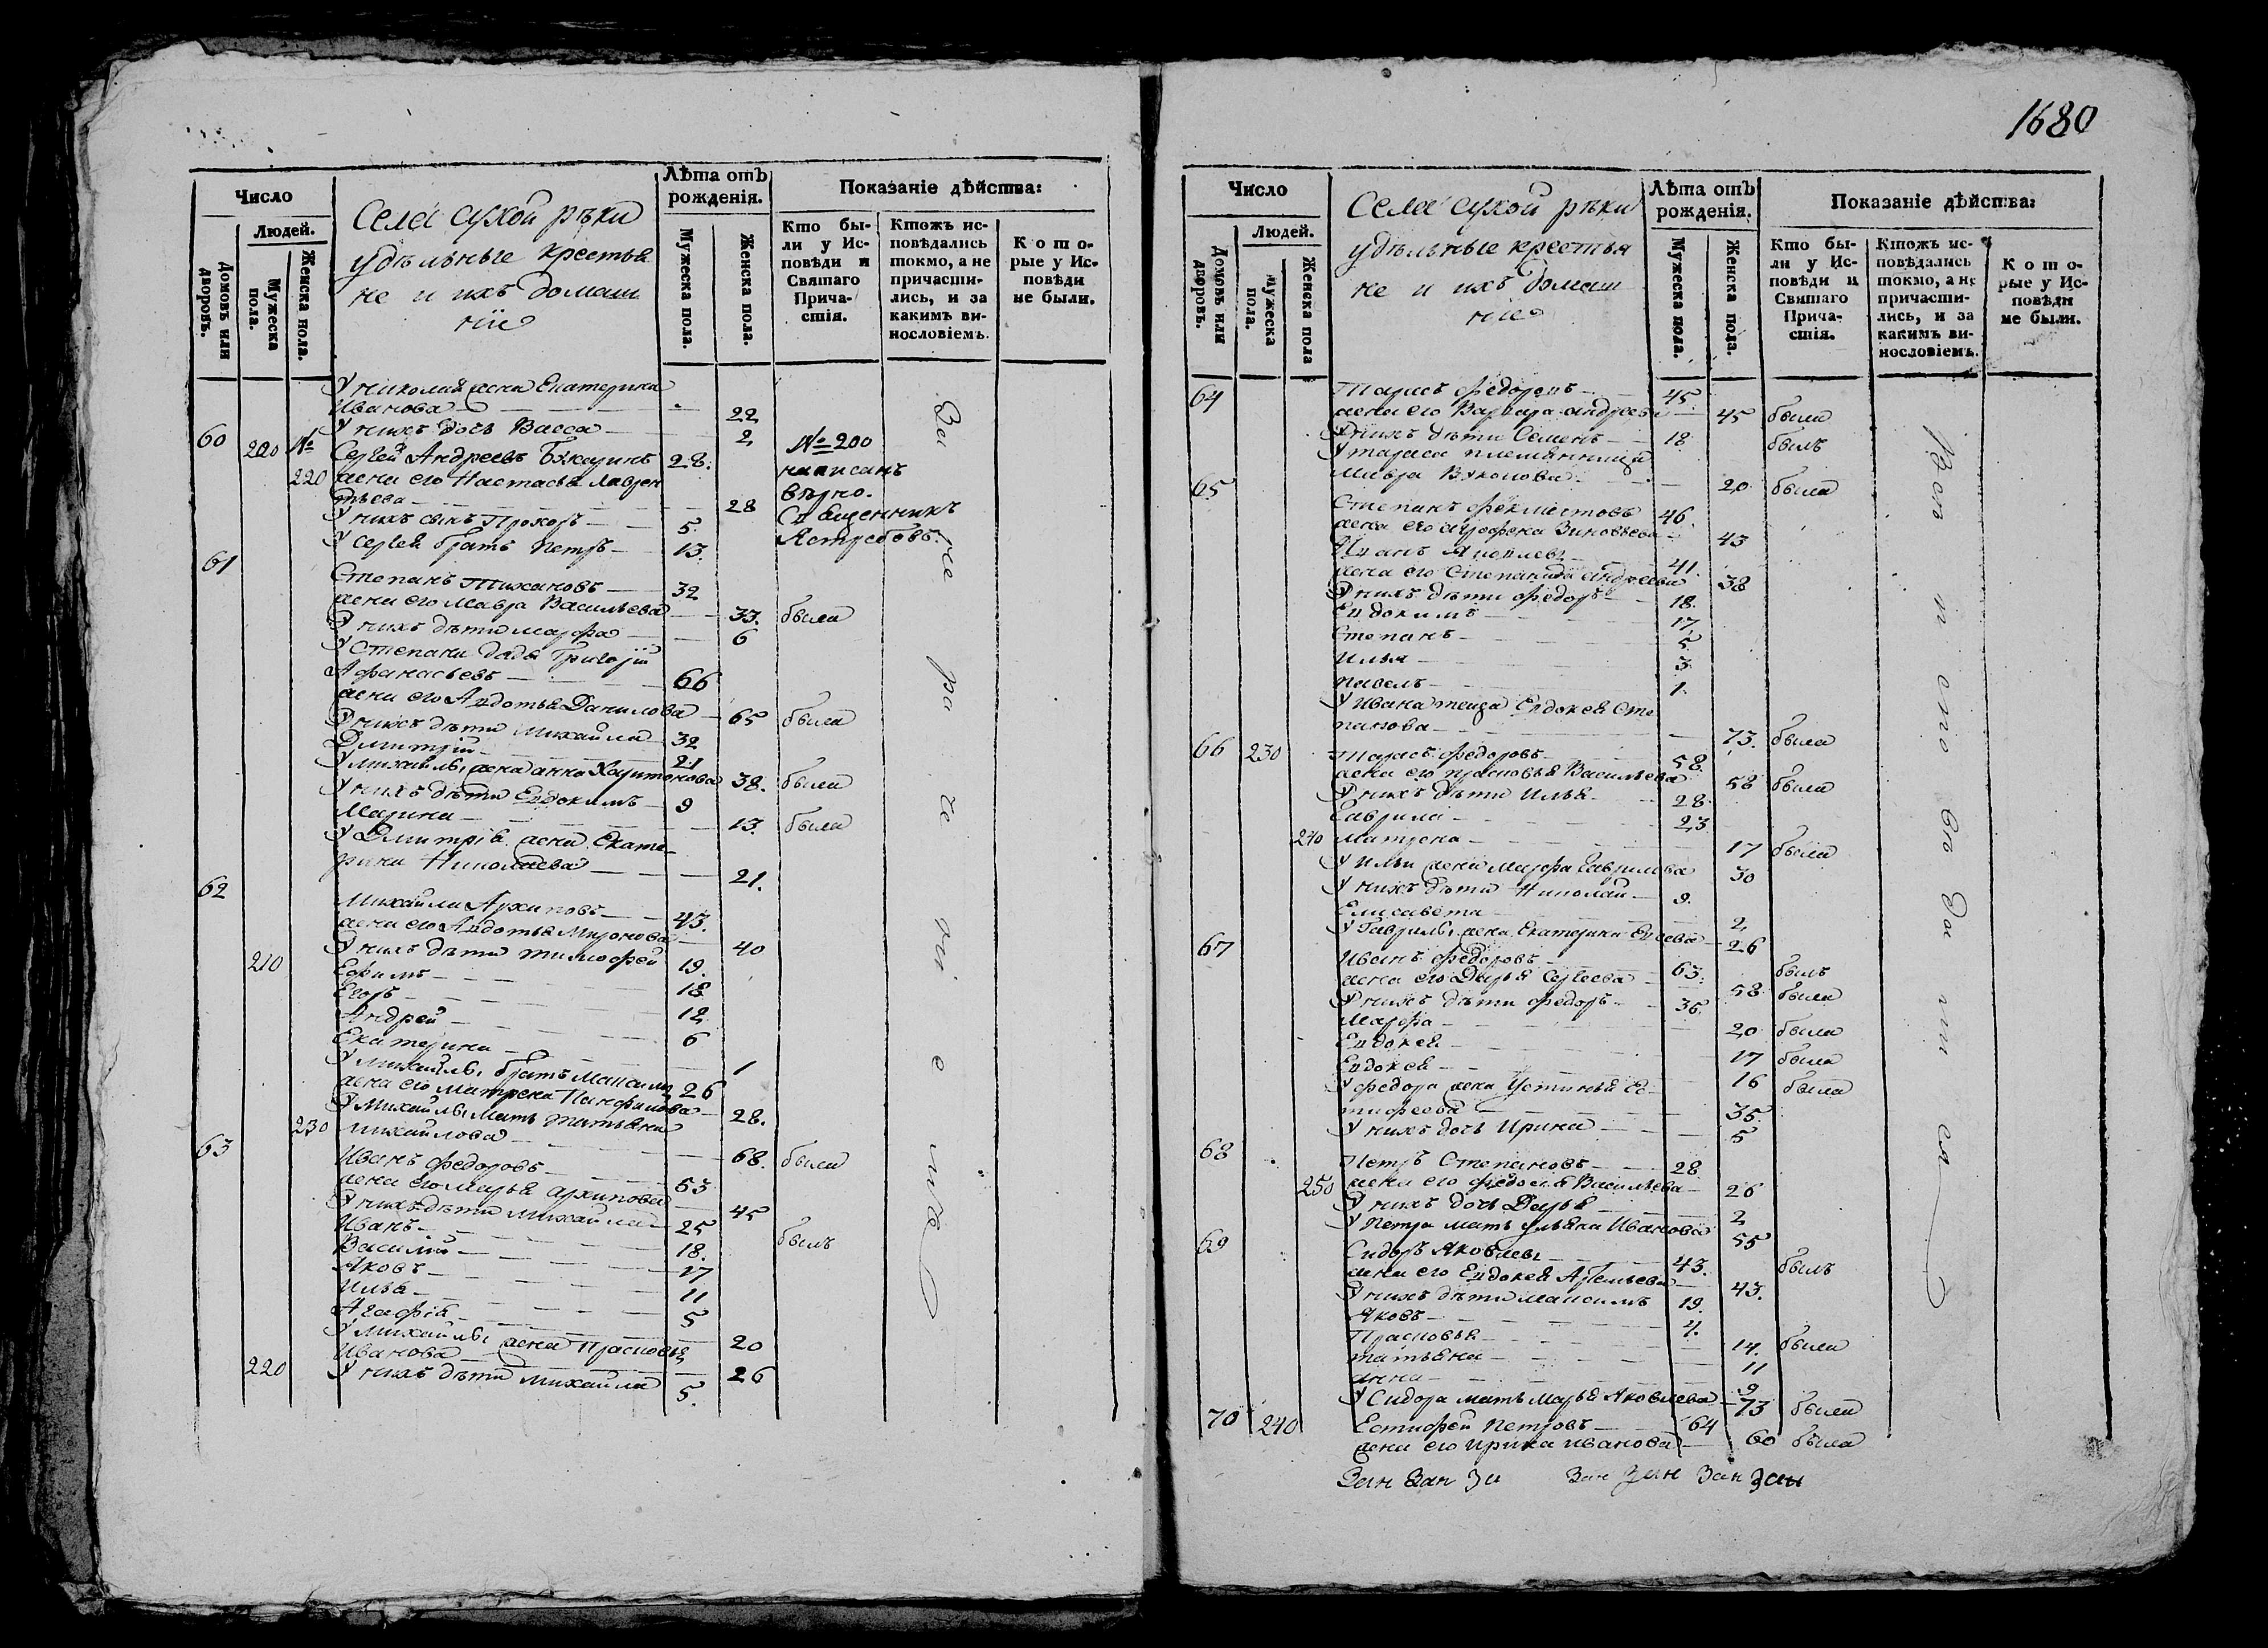 Число
Людей.
Домовъ или дворовъ.
Мужеска пола.
Женска пола.
Села Сухой рѣки
удѣльные крестья
не и ихъ домаш
ніе
Лѣта отъ рожденія.
Мужеска пола.
Женска пола.
Показаніе дѣйства:
Кто бы-
ли у Ис-
повѣди и
Святаго
Прича-
стія.
Ктожъ ис-
повѣдались
токмо, а не
причасти-
лись, и за
какимъ ви-
нословіемъ.
Кото-
рые у Ис-
повѣди
не были.
У Николая жена Екатерина
Иванова 22
У нихъ дочь Васса 2
60 200 № Сергей Андреевъ 28.
220 жена его Настасья Лаврен
тьева 28
У нихъ сынъ Прохоръ 5.
У Сергея братъ Петръ 13.
№ 200
написанъ
вѣрно.
Священникъ
Ястребовъ.
61 Степанъ Тихановъ 32
жена его Мавра Васильева 33. была
У нихъ дѣти Марфа 6
У Степана дядя Григорій
Афанасьевъ 66
жена его Авдотья Данилова 65 была
У нихъ дѣти Михайла 32
Дмитрій 21
У Михайлы жена Анна Харитонова 38. была
У нихъ дѣти Евдокимъ 9
Марина 13. была
У Дмитрія жена Екате-
рина Николаева 21.
62 Михайла Архиповъ 43.
жена его Авдотья Миронова 40
У нихъ дѣти Тимофей 19.
210 Ефимъ 18
Егоръ 12
Андрей 6
Екатерина 1
У Михайлы братъ Максимъ 26
жена его Матрена Панфилова 28.
У Михайлы мать Татьяна
230 Михайлова 68. была
63 Иванъ Федоровъ 53
жена его Марья Архипова 45
У нихъ дѣти Михайла 25
Иванъ 18. былъ
Василій 17
Яковъ 11
Илья 5
Агафія 20
У Михайлы жена Прасковья
Иванова 26
220 У нихъ дѣти Михайла 5.
За не ра че ні е мъ
1680
Число
Людей.
Домовъ или дворовъ.
Мужеска пола.
Женска пола
Села Сухой рѣки
удѣльные крестья
не и ихъ домаш
ніе
Лѣта отъ рожденія.
Мужеска пола.
Женска пола.
Показаніе дѣйства:
Кто бы-
ли у Ис-
повѣди и
Святаго
Прича-
стія.
Ктожъ ис-
повѣдались
токмо, а не
причасти-
лись, и за
какимъ ви-
нословіемъ.
Кото-
рые у Ис-
повѣди
не были.
64 Тарасъ Федоровъ 45
жена его Варвара Андреева 45 была
У нихъ дѣти Семенъ 18 былъ
У Тараса племянница
Мавра Вуколова 20 была
65 Степанъ 46.
жена его Аграфена Зиновьева 43
Иванъ Яковлевъ 41.
жена его Степанида Андреева 38
У нихъ дѣти Федоръ 18.
Евдокимъ 17
Степанъ 5
Илья 3
Павелъ 1.
У Ивана теща Евдокея Сте
панова 73. была
66 230 Тарасъ Федоровъ 58
жена его Прасковья Васильева 58 была
У нихъ дѣти Илья 28
Гаврила 23
240 Матрена 17 была
У Ильи жена Марфа Гаврилова 30
У нихъ дѣти Николай 9.
Елисавета 2
У Гаврилы жена Екатерина 26
67 Иванъ Федоровъ 63. былъ
жена его Дарья Сергеева 58 была
У нихъ дѣти Федоръ 36.
Марфа 20 была
Евдокея 17 была
Евдокея 16 была
У Федора жена Устинья Ес-
тифеева 35.
У нихъ дочь Ирина 5
68 Петръ Степановъ 28
250 жена его Федосья Васильева 26
У нихъ дочь Дарья 2
У Петра мать Ульяна Иванова 55
69 Сидоръ Яковлевъ 43. былъ
жена его Евдокея 43.
У нихъ дѣти Максимъ 19.
Яковъ 4.
Прасковья 14. была
Татьяна 11
Анна 9
У Сидора мать Марья Яковлева 73 была
70 240 Естифей Петровъ 64
жена его Ирина Иванова 60 была